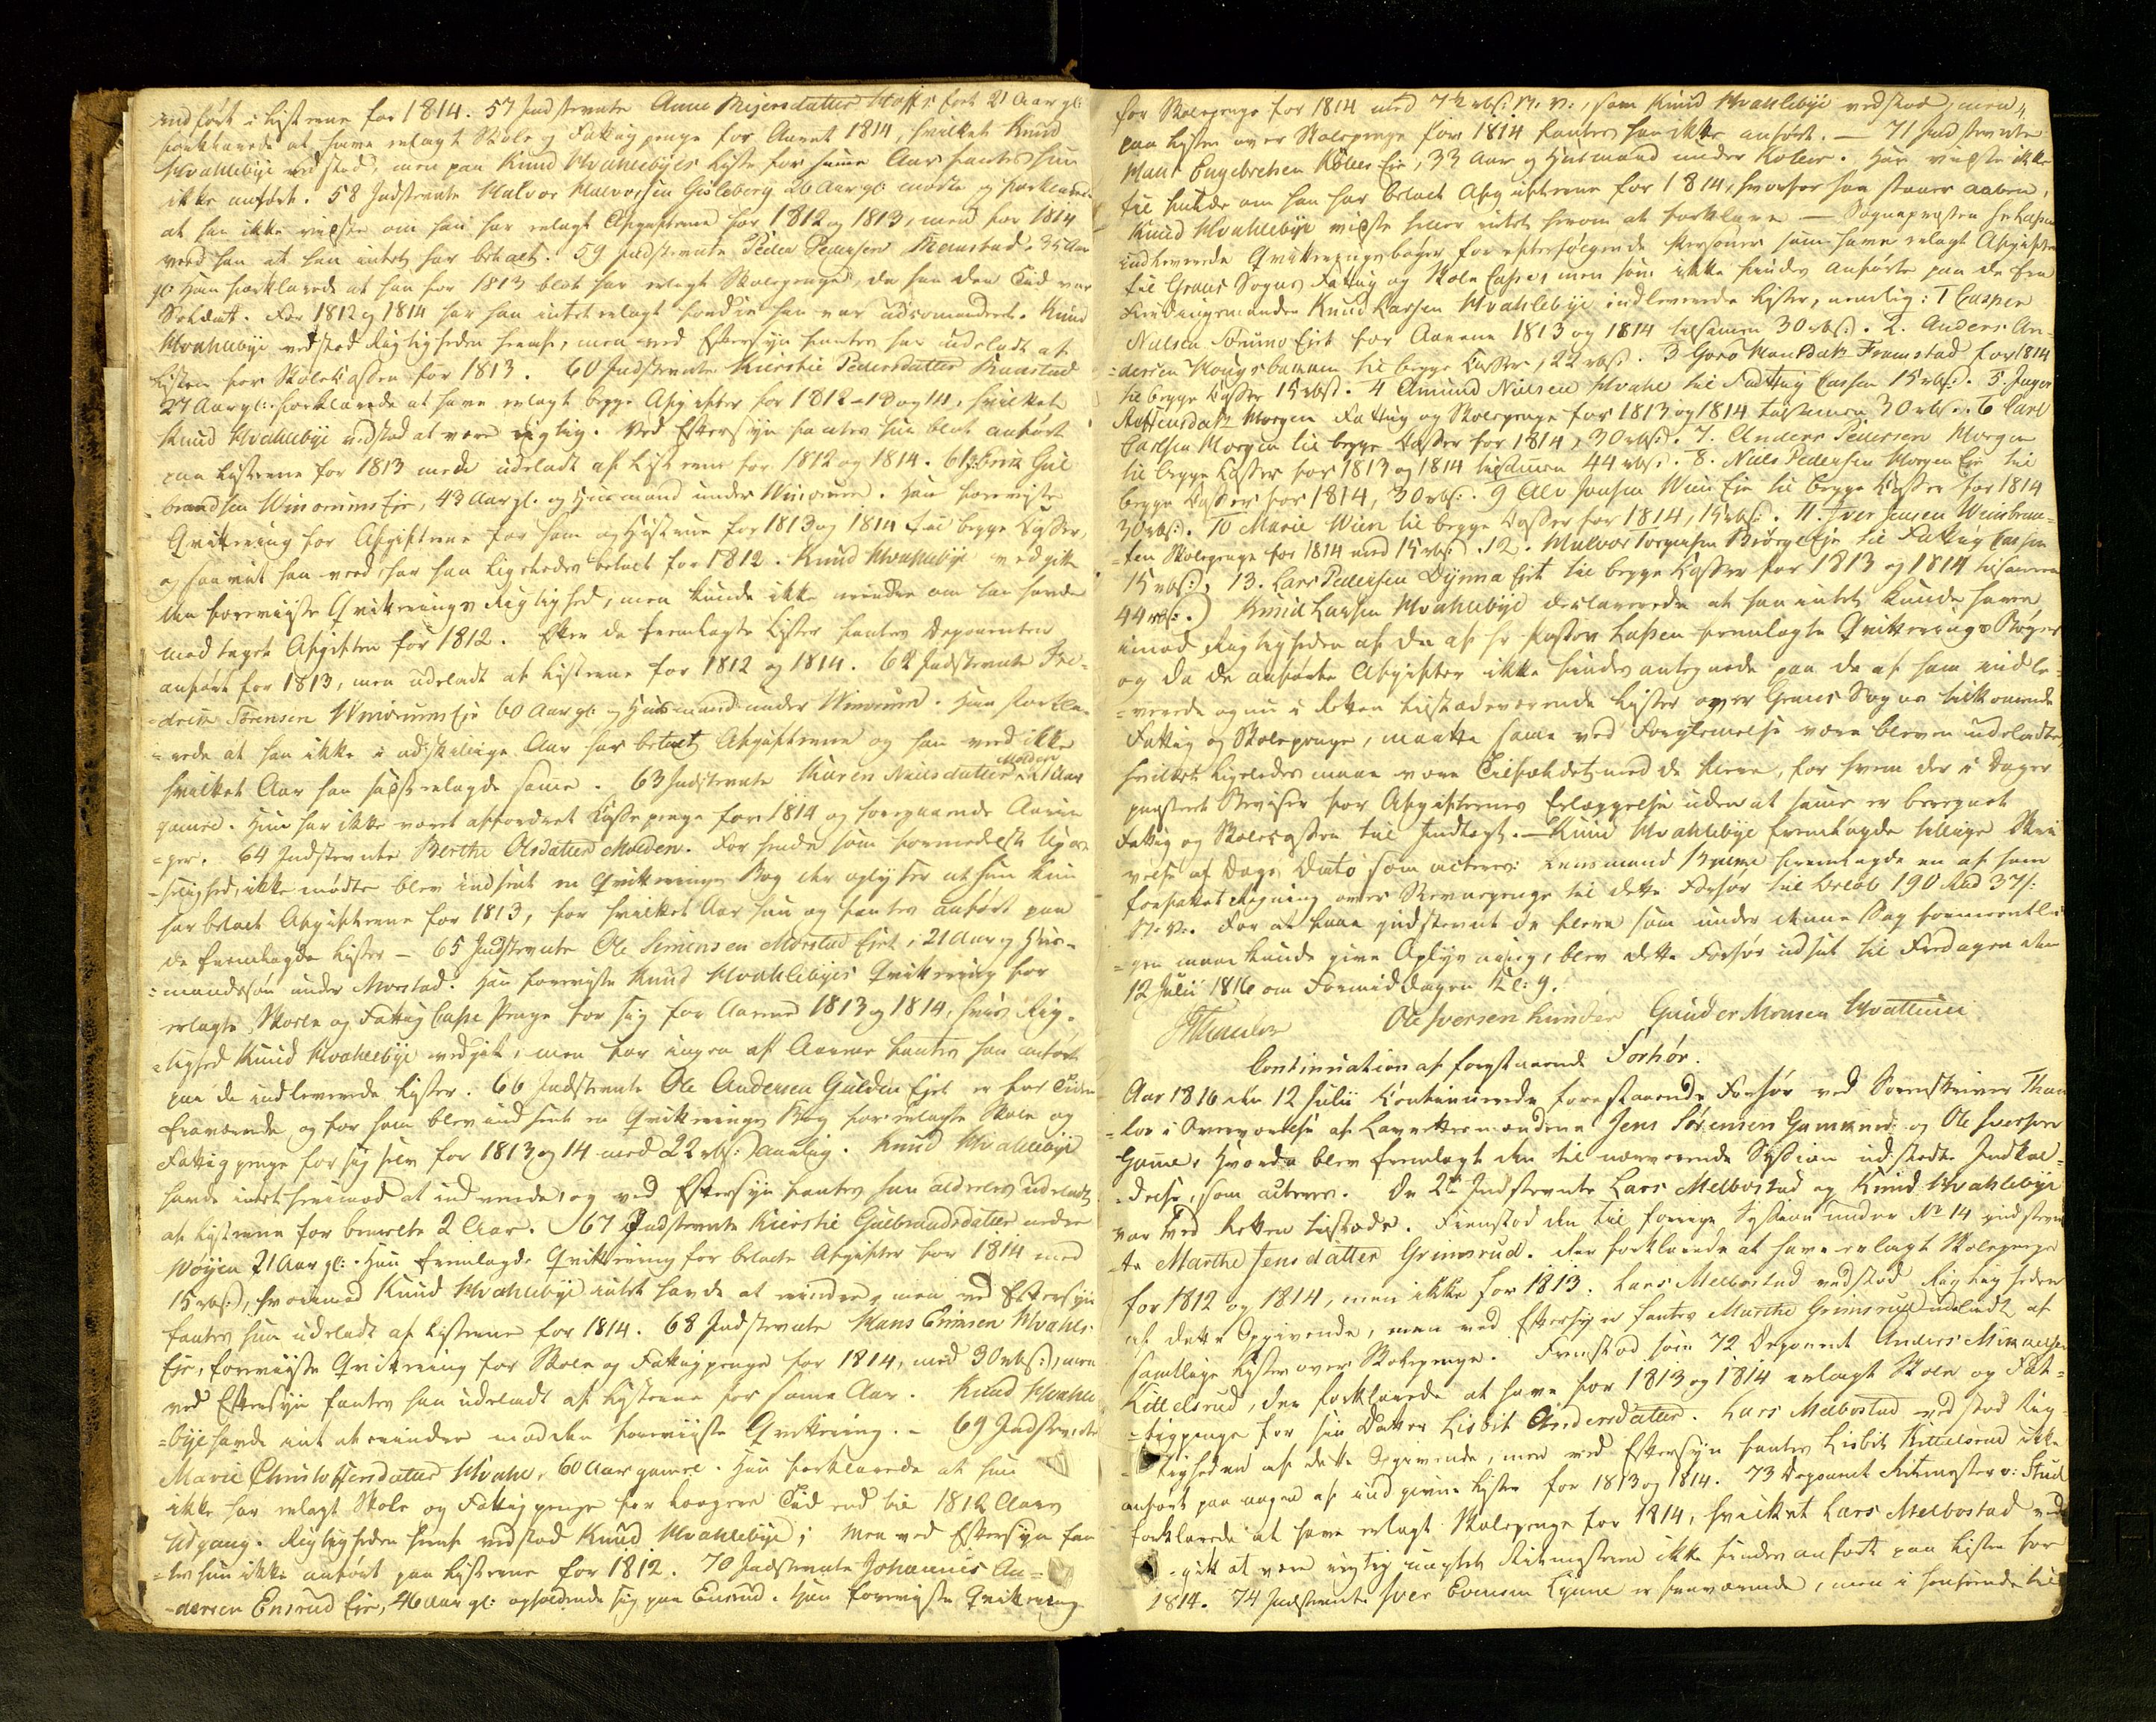 indført i Listerne for 1814. 57 Indstevnte Anne Mejersdatter Hoff, født 21 Aar gl:
forklarede at have erlagt Skole og Fattigpenge for Aaret 1814, hvilket Knud
Hvahlebye vedstod, men paa Knud Hvahlebyes Liste for samme Aar fantes hun
ikke anført. 58 Indstevnte Halvor Halvorsen Gisleberg 26 Aar gl: mødte og forklarede
at han ikke vidste om han har erlagt Afgifterne for 1812 og 1813, men for 1814
veed han at han intet har betalt. 59 Indstevnte Peder Pedersen Framstad, 34 Aar
gl: Han forklarede at han for 1813 blot har erlagt Skolepenge, da han den Tid var
Soldat. For 1812 og 1814 har han intet erlagt fordi han var udcomanderet. Knud
Hvahlebye vedstod Rigtigheden heraf, men ved Eftersyn fantes han udeladt af
Listen for SkoleCassen for 1813. 60 Indstevnte Kierstie Pedersdatter Framstad
27 Aar gl: forklarede at have erlagt begge Afgifter for 1812-13 og 14, hvilket
Knud Hvahlebye vedstod at være rigtig. Ved Eftersyn fantes hun blot anført
paa Listerne for 1813 mede udeladt af Listerne for 1812 og 1814. 61 Erik Gul
brandsen Winorums Eje, 43 Aar gl. og Huusmand under Winorum. Han foreviste
Qvittering for Afgifterne for ham og Hustrue for 1813 og 1814 til begge Casser,
og saavit han veed har han ligeledes betalt for 1812. Knud Hvahlebye vedgik
den foreviiste Qvitterings Rigtighed, men kunde ikke mindes om han havde
modtaget Afgiften for 1812. Efter de fremlagte Lister fantes Deponenten
anført for 1813, men udeladt af Listerne for 1812 og 1814. 62 Indstevnte Fre-
=drik Sørensen Winorums Eje 60 Aar gl: og Huusmand under Winorum. Han forkla-
=rede at han ikke i adskillige Aar har betalt Afgifterne og han ved ikke
hvilket Aar han sidst erlagde samme. 63 Indstevnte Karen Nielsdatter Molden 21 Aar
gamel. Hun har ikke været affordret Cassepenge for 1814 og foregaaende Aarin
=ger. 64 Indstevnte Berthe Olsdatter Molden. For hende som formedelst Upas
=selighed, ikke mødte blev indsent en Qvitterings Bog der oplyser at hun kun
har betalt Afgifterne for 1813, for hvilket Aar hun og fantes anført paa
de fremlagde Lister – 65 Indstevnte Ole Simensen Morstad Eiet, 21 Aar og Huus-
=mandssøn under Morstad. Han foreviste Knud Hvahlebyes Qvittering for
erlagte Skole og Fattig Casse Penge for sig for Aarene 1813 og 1814, hvis Rig-
=tighed Knud Hvahlebye vedgik, men for ingen af Aarene fantes han anført
paa de indleverede Lister. 66 Indstevnte Ole Andersen Gulden Eiet er for Tiden
fraværende og for ham blev indsent en Qvitterings Bog for erlagte Skole og
Fattigpenge for sig selv for 1813 og 14 med 22 rbs: aarlig. Knud Hvahlebye
havde intet herimod at indvende, og ved Eftersyn fantes han aldeles udeladt
af Listerne for bemelte 2 Aar. 67 Indstevnte Kierstie Gulbrandsdatter nedre
Wøyen 21 Aar gl: Hun fremlagde Qvittering for betalte Afgifter for 1814 med
15 rbs:, hvorimod Knud Hvahlebye intet havde at erindre, men ved Eftersyn
fantes hun udeladt af Listerne for 1814. 68 Indstevnte Hans Erinsen Hvahls
Eje, foreviiste Qvittering for Skole og Fattigpenge for 1814, med 30 rbs:, men
ved Eftersyn fantes han udeladt af Listerne for samme Aar. Knud Hvahle
=bye havde intet at erindre mod den foreviiste Qvittering. – 69 Indstevnte
Marie Christophersdatter Hvahl, 60 Aar gamel. Hun forklarede at hun
ikke har erlagt Skole og Fattigpenge for længere Tid end til 1812 Aars
Udgang. Rigtigheden heraf vedstod Knud Hvahlebye; Men ved Eftersyn fan
=tes hun ikke anført paa Listerne for 1812. 70 Indstevnte Johannes An=
=dersen Ensrud Eje, 46 Aar gl: opholdende sig paa Ensrud. Han foreviste Qvittering
for Skolepenge for 1814 med 7½ rbs: N. V:, som Knud Hvahlebye vedstod, men
paa Listen over Skolepenge for 1814 fantes han ikke anført. – 71 Indstevnte
Hans Engebretsen Kolers Eje, 33 Aar og Husmand under Koler. Han vidste ikke
til fulde om han har betalt Afgifterne for 1814, hvorfor han staaer aaben,
Knud Hvahlebye vidste heller intet herom at forklare – Sognepræsten Hr Lassen
indleverede Qvitteringsbøger for efterfølgende Personer som have erlagt Afgifter
til Grans Sogns Fattig og Skole Casse, men som ikke findes anførte paa de fra
Forligsmanden Knud Larsen Hvahlebye indleverede Lister, nemlig: 1 Casper
Nielsen Sørumo Eiet for Aarene 1813 og 1814 tilsamen 30 rbs:. 2. Anders An-
=dersen Hougsbakken til begge Casser, 22 rbs:. 3 Goro Hansdatr Framstad for 1814
til begge Casser 15 rbs:. 4 Amund Nielsen Hvahl til Fattig Cassen 15 rbs:. 5. Inger
Steffensdatr Morgen Fattig og Skolepenge for 1813 og 1814 tilsamen 30 rbs:. 6 Carl
Carlsen Morgen til begge Casser for 1814, 30 rbs:. 7. Anders Pedersen Morgen
til begge Casser for 1813 og 1814 tilsamen 44 rbs:. 8. Niels Pedersen Morgen Eje til
begge Casser for 1814, 30 rbs:. 9 Ole Jensen Wien Eje til begge Casser for 1814
30 rbs:. 10 Marie Wien til begge Casser for 1814, 15 rbs:. 11. Iver Jensen Wienbrau-
=ten Skolepenge for 1814 med 15 rbs:. 12. Halvor Torgersen Biørge Eje til Fattig Cassen
15 rbs:, 13. Lars Pedersen Dynna Eiet til begge Casser for 1813 og 1814 tilsamen
44 rbs:) Knud Larsen Hvahlebye declarerede at han intet kunde have
imod Rigtigheden af de af Hr Pastor Lassen fremlagte Qvitterings Bøger
og da de anførte Afgifter ikke findes antegnede paa de af ham indle-
=verede og nu i Retten tilstædeværende Lister over Grans Sogns tilkomende
Fattig og Skolepenge, maatte same ved Forglemmelse være bleven udeladte,
hvilket ligeledes maae være Tilfældet med de flere, for hvem der i Dag er
presteret Beviser for Afgifternes Erlæggelse uden at same er beregnet
Fattig og Skolecassen til Indtægt. – Knud Hvahlebye fremlagde tillige Skri
velse af Dags Dato som acteres: Lensmand fremlagde en af ham
forfattet Regning over Stevnepenge til dette Forhør til Beløb 190 Rbd 37 s:
N. V. For at faae indstevnt de flere som under denne Sag formeentli-
=gen maae kunde give Oplysning, blev dette Forhør udsat til Fredagen den
12 Julii 1816 om Formiddagen Kl: 9.
Thaulow Ole Iversen Kinder Gunder Monsen Hvattum
Continuation af forestaaende Forhør.
Aar 1816 den 12 Julii Continuerede forestaaende Forhør ved Sorenskriver Thau
=low i Overværelse af Laurettesmændene Jens Sørensen Gamme: og Ole Iversen
Game, Hvorda blev fremlagt den til nærværende Session udstædte Indkal-
=delse, som acteres. De 2de Indstevnte Lars Melbostad og Knud Hvahlebye
var ved Retten tilstæde. Fremstod den til forrige Session under No 14 indstevn
te Marthe Jensdatter Grimsrud. Der forklarede at have erlagt Skolepenge
for 1812 og 1814, men ikke for 1813. Lars Melbostad vedstod Rigtigheden
af dette Opgivende, men ved Eftersyn fantes Marthe Grimsrud udeladt af
samtlige Lister over Skolepenge. Fremstod som 72 Deponent Anders Mikkelsen
Kittelsrud, der forklarede at have for 1813 og 1814 erlagt Skole og Fat-
=tigpenge for sin Datter Lisbit Andersdatter. Lars Melbostad vedstod Rig-
=tigheden af dette Opgivende, men ved Eftersyn fantes Lisbit Kittelsrud ikke
anført paa nogen af indgivne Lister for 1813 og 1814. 73 Deponent Ritmester v: Stud
forklarede at have erlagt Skolepenge for 1814, hvilket Lars Melbostad ved
=gik at være rigtig uagtet Ritmesteren ikke findes anført paa Listen for
1814. 74 Indstevnte Iver Evensen Lynne er fraværende, men i Henseende til